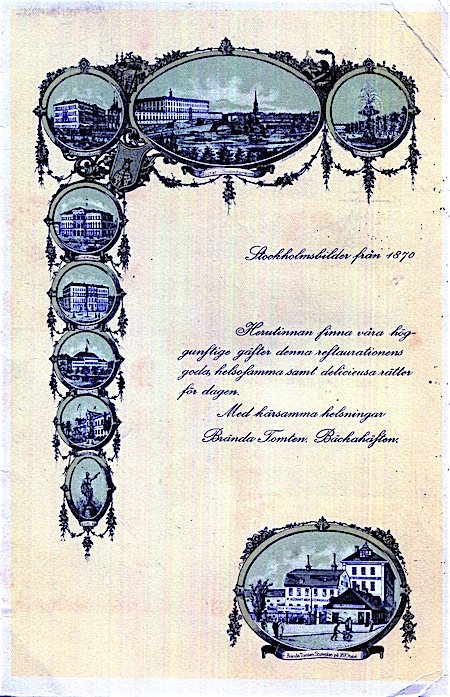 Stockholmsbilder från 1870
Herutinnan finna våra hög-
gunstige gäster denna restaurationens
goda, helsosamma samt delicieusa rätter
för dagen.
Med kärsamma helsningar
Brända Tomten. Bäckahästen.
Brända Tomten, Stureplan på